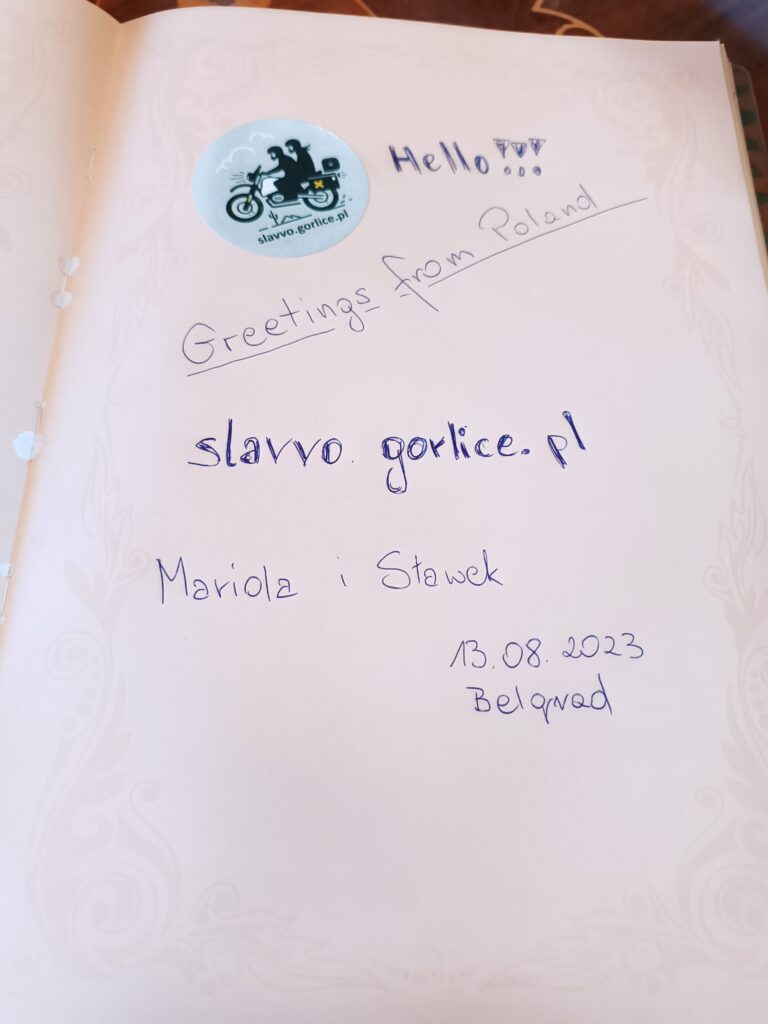 slavvo.gorlice.pl
Hello!!!
Greetings from Poland
slavvo.gorlice.pl
Mariola i Sławek
13.08.2023
Belgrad